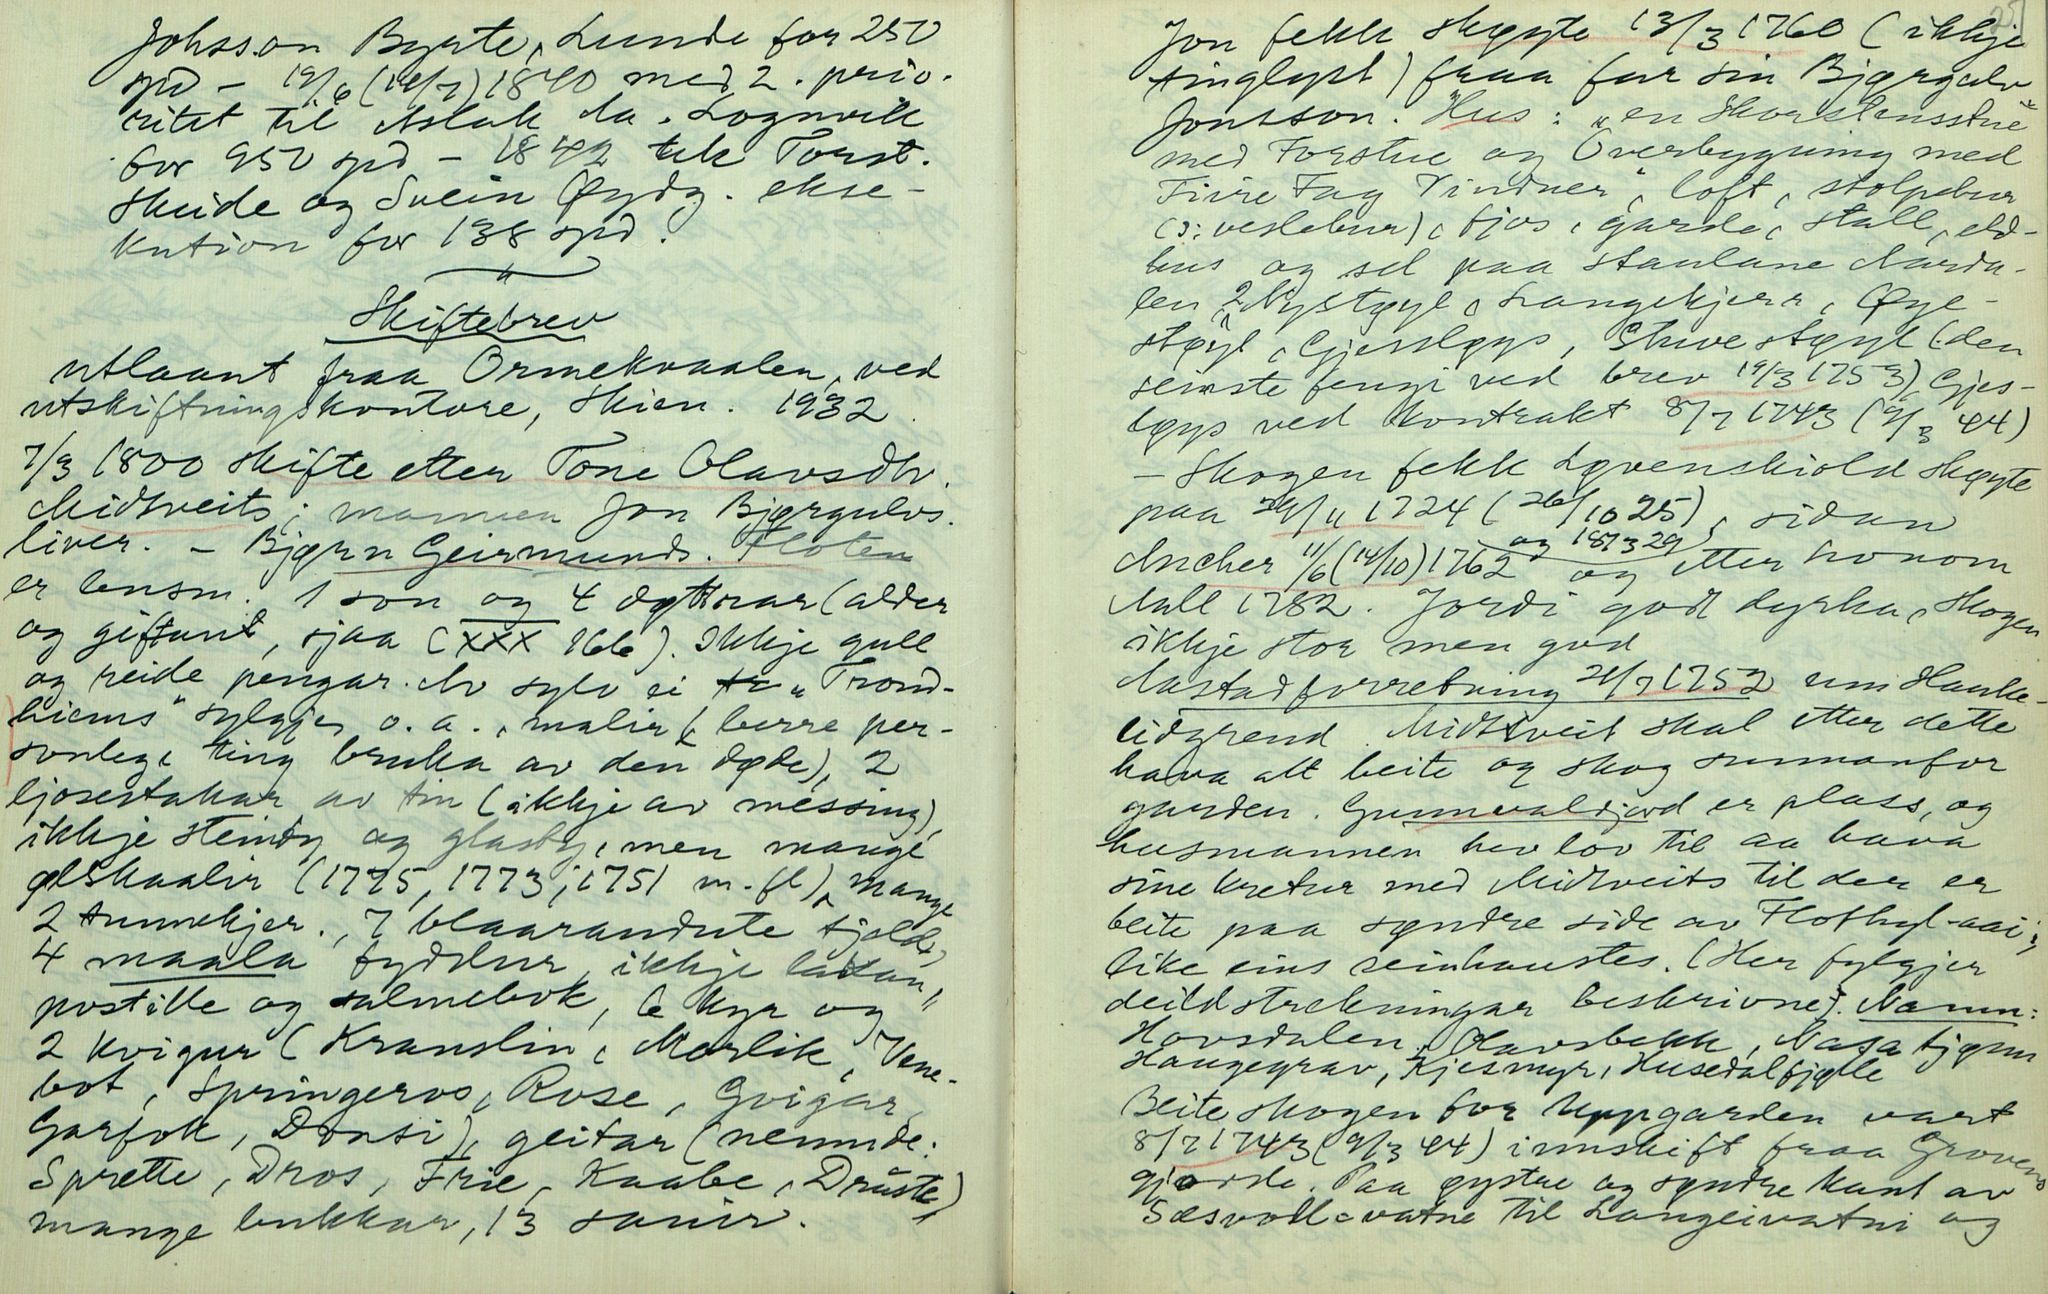 Johsson Byrte, Lunde for 250
spd – 19/6 (14/7) 1840 med 2. prio-
ritet til Aslak Aa. Lognvik
for 950 spd – 1842 tek Torst.
Skeide og Svein Øydg. ekse-
kution for 138 spd.
Skiftebrev
utlaant fraa Ormekvaalen, ved
utskiftningskontore, Skien. 1932.
7/3 1800 skifte etter Tone Olavsdtr.
Midtveits; mannen Jon Bjørgulvs.
liver. – Bjørn Geirmunds. Floten
er lensm. 1 son og 4 døttrar (alder
og giftant, sjaa (XXX 166). Ikkje gull
og reide pengar. Av sylv ei „Trond-
hiems" sylgje, o. a., malir (berre per-
sonlege ting bruka av den døde), 2
ljosestakar av tin (ikkje av messing),
ikkje steinty og glasty, men mange
ølskaalir (1775, 1773, 1751 m. fl), mange
2 tunnekjer., 7 blaarandute tjeld,
4 maala fyddur, ikkje
postille og salmebok, 6 kyr og
2 kvigur (Kranslin, Morlik, Vene-
bot, Springeros, Rose, Gvigar,
Garfok, Donsi), geitar (nemnde:
Sprette, Dros, Frie, Kaabe, Druste)
mange bukkar, 13 sauir.
Jon fekk skøyte 13/3 1760 (ikkje
tinglyst) fraa far sin Bjørgulv
Jonsson. Hus: „en Skorstensstue
med Forstue og Overbygning med
Fire Fag Vinduer", loft, stolpebur
(ɔ: veslebur), fjos, garde, stall, eld-
hus og sel paa staulane Aarda-
len, 2 Nystøyl, Langekjerr, Øye-
støyl, Gjessløys, Stuvestøyl (den
seinste fengi ved brev 19/3 1753), Gjes-
løys ved Kontrakt 8/7 1743 (9/3 44)
– Skogen fekk Løvenskiold skøyte
paa 24/11 1724 (26/10 25), sidan
og 18/3 29
Ancher 11/6 (14/10) 1762 og etter honom
Aall 1782. Jordi godt dyrka, skogen
ikkje stor men god
Aastadforretning 21/7 1752 um Hauke-
lidgrend. Midtveit skal etter dette
hava alt beite og skog sunnanfor
garden. Gunnvaldjord er plass, og
husmannen hev lov til aa hava
sine kretur med Midtveits til der er
beite paa syndre side av Flothyl-aai;
like eins reinhaustes. (Her fylgjer
deildstrekningar beskrivne). Namn:
Hovsdalen, Olavsbekk, Nasatjønn
Haugegrav, Kjesmyr, Husedalfjølle
Beiteskogen for Uppgarden vart
8/7 1743 (9/3 44) innskift fraa Grovens
gjorde. Paa øystre og syndre kant av
Sæsvoll-vatne til Langeivatni og